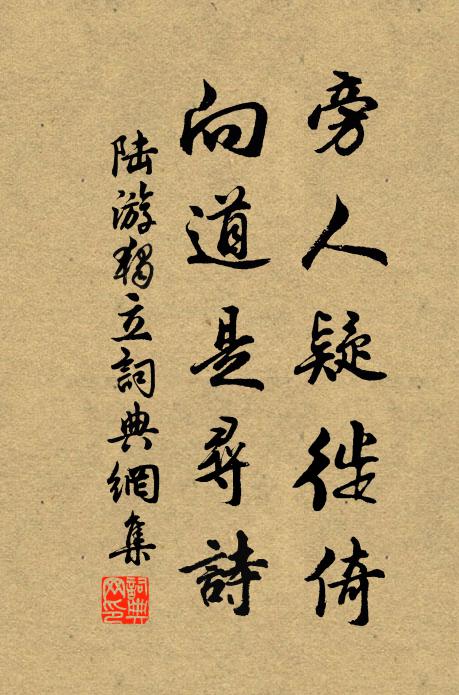 旁人疑徙倚
向道是尋詩
陸游獨立詞典網集
詞典網印